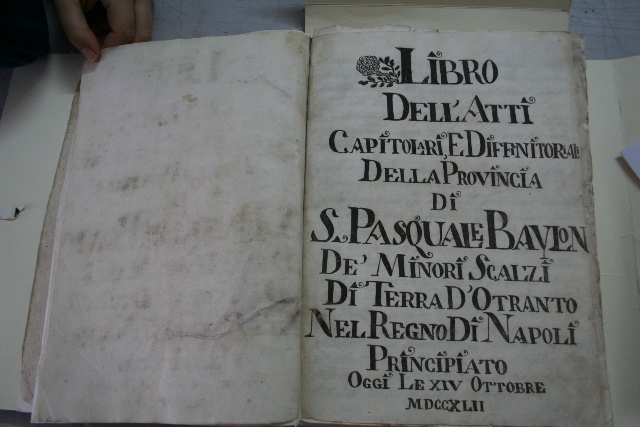 LIBRO
DELL'ATTI
CAPITOLARI, E DIFFINITORIALI
DELLA PROVINCIA
DI
S. PASQUALE BAYLON
DE' MINORI SCALZI
DI TERRA D'OTRANTO
NEL REGNO DI NAPOLI
PRINCIPIATO
OGGI LE XIV OTTOBRE
MDCCXLII